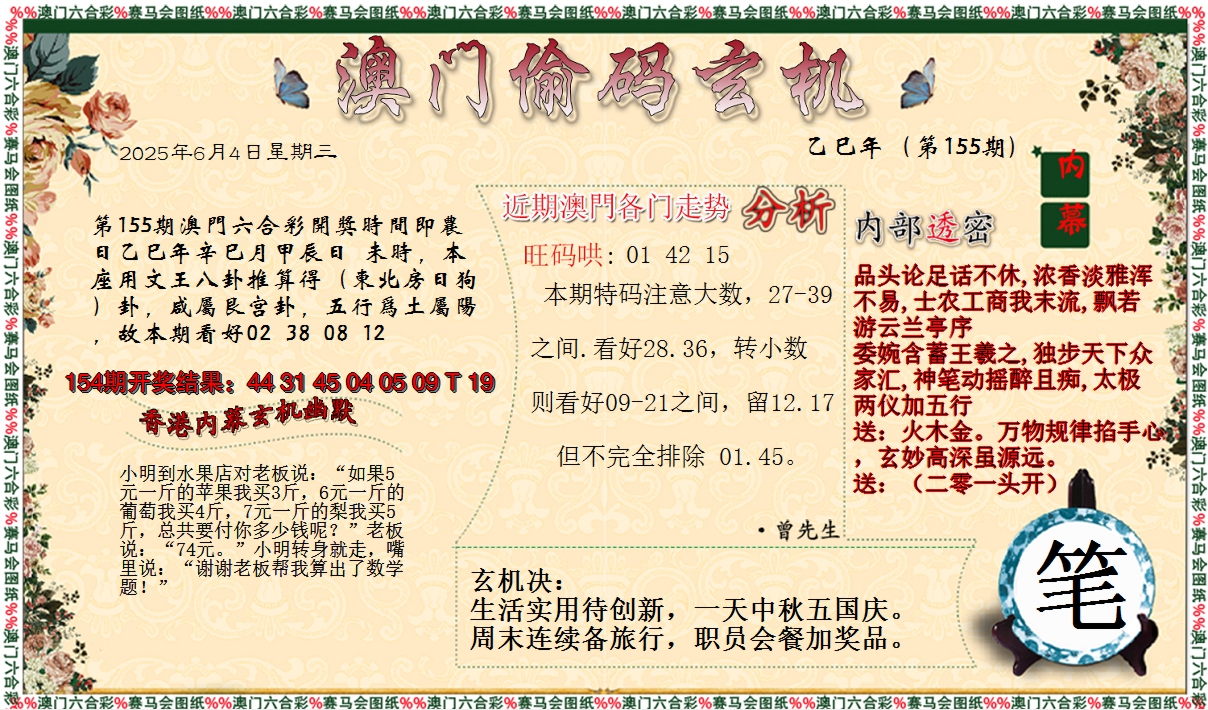 %%澳门六合彩%赛马会图纸%%澳门六合彩%赛马会图纸%%澳门六合彩%赛马会图纸%%澳门六合彩%赛马会图纸%%澳门六合彩%赛马会图纸%%澳门六合彩%赛马会图纸%%
澳门偷码玄机
2025年6月4日星期三
乙巳年（第155期）
内
幕
第155期澳門六合彩開獎時間即農
日乙巳年辛巳月甲辰日 未時，本
座用文王八卦推算得（東北房日狗
）卦，咸屬艮宫卦，五行爲土屬陽
，故本期看好02 38 08 12
154期开奖结果：44 31 45 04 05 09 T 19
香港内幕玄机幽默
小明到水果店对老板说：“如果5
元一斤的苹果我买3斤，6元一斤的
葡萄我买4斤，7元一斤的梨我买5
斤，总共要付你多少钱呢？”老板
说：“74元。”小明转身就走，嘴
里说：“谢谢老板帮我算出了数学
题！”
近期澳門各门走势 分析
旺码哄: 01 42 15
本期特码注意大数，27-39
之间.看好28.36，转小数
则看好09-21之间，留12.17
但不完全排除 01.45。
·曾先生
内部透密
品头论足话不休,浓香淡雅浑
不易,士农工商我末流,飘若
游云兰亭序
委婉含蓄王羲之,独步天下众
家汇,神笔动摇醉且痴,太极
两仪加五行
送：火木金。万物规律掐手心
，玄妙高深虽源远。
送：（二零一头开）
玄机决：
生活实用待创新，一天中秋五国庆。
周末连续备旅行，职员会餐加奖品。
笔
%%澳门六合彩%赛马会图纸%%澳门六合彩%赛马会图纸%%澳门六合彩%赛马会图纸%%澳门六合彩%赛马会图纸%%澳门六合彩%赛马会图纸%%澳门六合彩%赛马会图纸%%